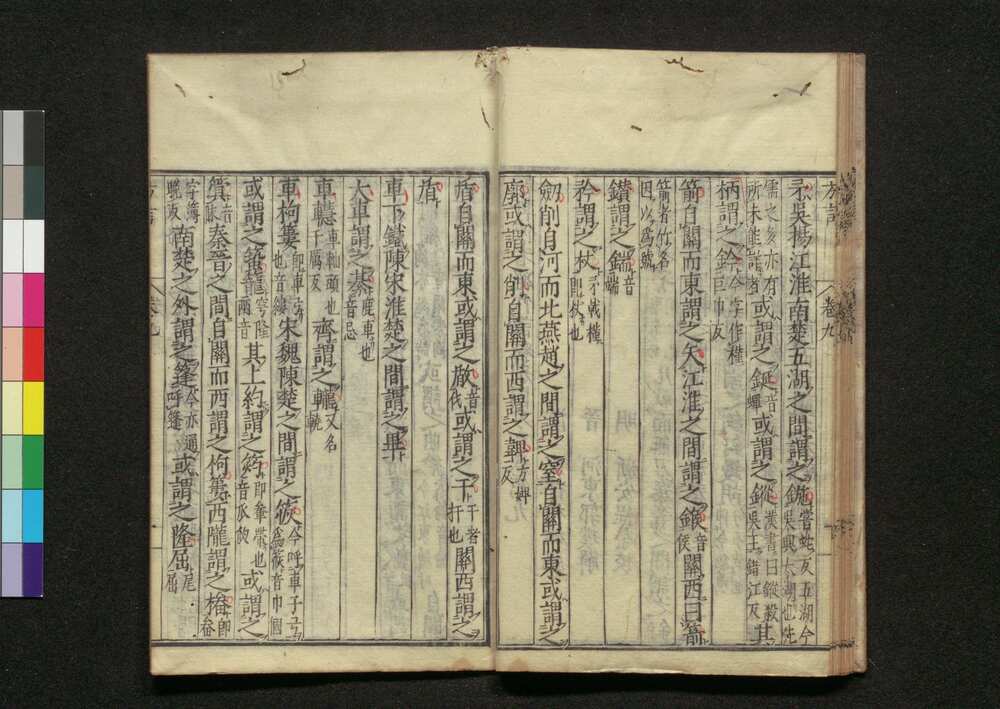 方言 卷九
矛吳揚江淮南楚五湖之間謂之鍦嘗蛇反五湖今吳興太湖也先
儒之多亦有所未能詳者或謂之鋋音蟬或謂之鏦漢書曰鏦殺吳王錯江反其
柄謂之鈐今字作㯳巨巾反
箭自關而東謂之矢江淮之間謂之鍭音侯關西曰箭
箭者竹名因以爲號
鑽謂之鍴音端
矜謂之杖矛戟㯳即杖也
劒削自河而北燕趙之間謂之室自關而東或謂之
廓或謂之削自關而西謂之鞞方婢反
盾自關而東或謂之瞂音伐或謂之干干者扞也關西謂之
盾
車下鐵陳宋淮楚之間謂之畢
大車謂之綦鹿車也音忌
車轊車軸頭也于厲反齊謂之轆又名
車枸簍即車弓也音縷宋魏陳楚之間謂之筱今呼車子弓爲筱音巾幗
或謂之𥴧籠穹隆兩音其上約謂之筠即軬帶也音瓜瓞或謂之
𥰠音脉秦晉之間自關而西謂之枸簍西隴謂之㭒即軬
字薄晚反南楚之外謂之篷今亦通呼篷或謂之隆屈尾屈